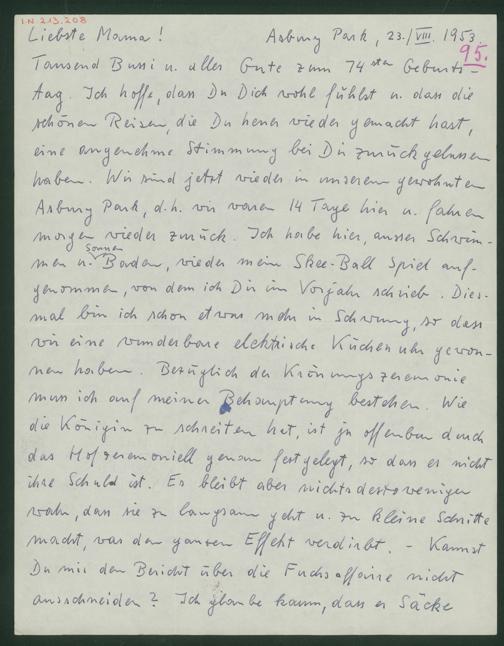 I.N. 213.208
Liebste Mama! Asbury Park, 23./VIII. 1953
95.
Tausend Bussi u. alles Gute zum 74sten Geburts-
tag. Ich hoffe, dass Du Dich wohl fühlst u. dass die
schönen Reisen, die Du heuer wieder gemacht hast,
eine angenehme Stimmung bei Dir zurückgelassen
haben. Wir sind jetzt wieder in unserem gewohnten
Asbury Park, d.h. wir waren 14 Tage hier u. fahren
morgen wieder zurück. Ich habe hier, ausser Schwim-
men u. Sonnen Baden, wieder mein Skee-Ball Spiel auf-
genommen, von dem ich Dir im Vorjahr schrieb. Dies-
mal bin ich schon etwas mehr in Schwung, so dass
wir eine wunderbare elektrische Küchenuhr gewon-
nen haben. Bezüglich der Krönungszeremonie
muss ich auf meiner Behauptung bestehen. Wie
die Königin zu schreiten hat, ist ja offenbar durch
das Hofzeremoniell genau festgelegt, so dass es nicht
ihre Schuld ist. Es bleibt aber nichtsdestoweniger
wahr, dass sie zu langsam geht u. zu kleine Schritte
macht, was den ganzen Effekt verdirbt. – Kannst
Du mir den Bericht über die Fuchsaffaire nicht
ausschneiden? Ich glaube kaum, dass es Säcke